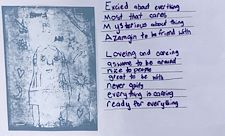 Excied about everthing
Most that cares
Mysterious about thing
Azamgin to be friend with
Loveing and careing
awsome to be around
nice to people
great to be with
never
everything is careing
ready for everything